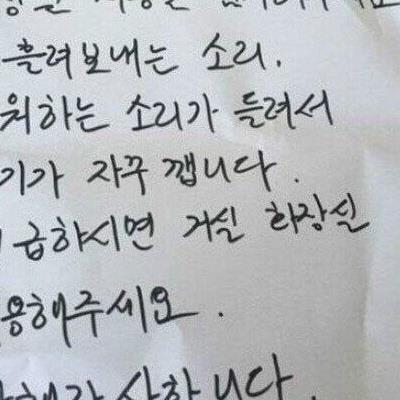 흘려보내는 소리.
워하는 소리가 들려서
기가 자꾸 깹니다.
급하시면 거실 화장실
용해주세요.
사합니다.